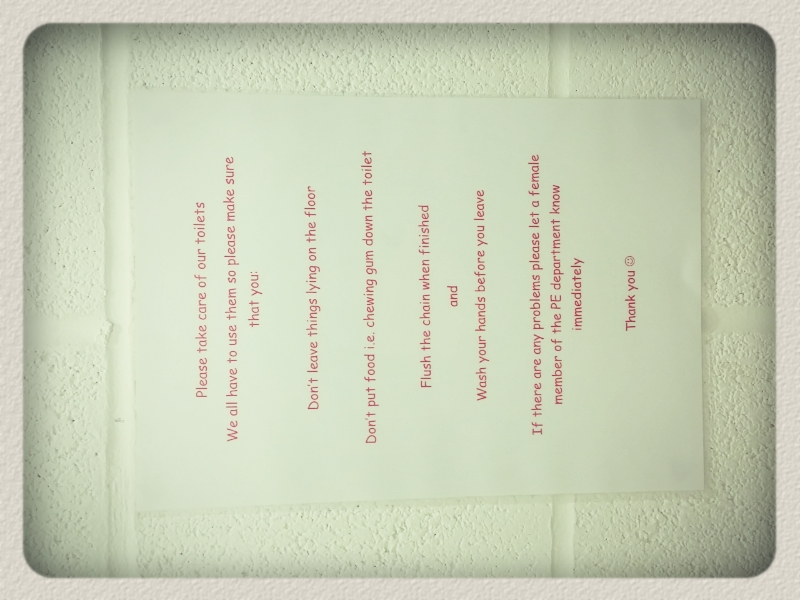 Please take care of our toilets
We all have to use them so please make sure
that you:
Don't leave things lying on the floor
Don't put food i.e. chewing gum down the toilet
Flush the chain when finished
and
Wash your hands before you leave
If there are any problems please let a female
member of the PE department know
immediately
Thank you ☺